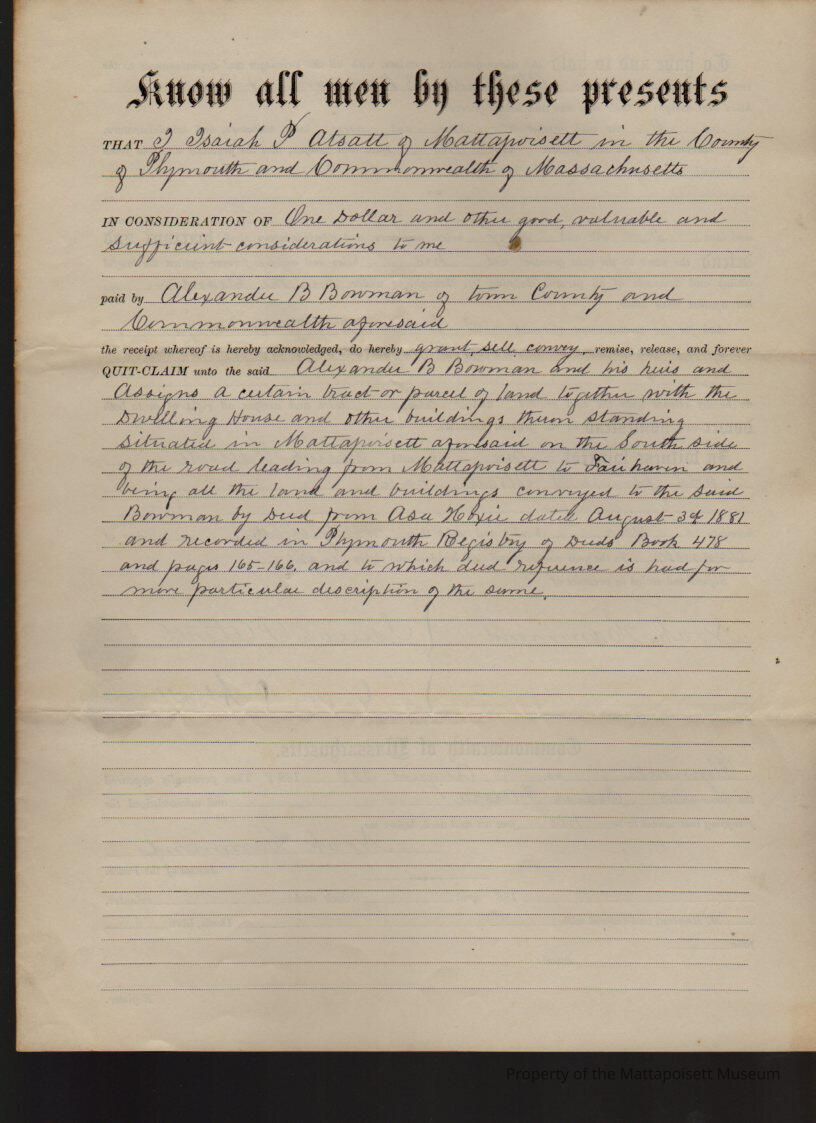 Know all men by these presents
THAT I Isaiah P Atsatt of Mattapoisett in the County
of Plymouth and Commonwealth of Massachusetts
IN CONSIDERATION OF One Dollar and other good, valuable and
sufficient considerations to me
paid by Alexander B Bowman of town County and
Commonwealth aforesaid
the receipt whereof is hereby acknowledged, do hereby grant, sell, convey, remise, release, and forever
QUIT-CLAIM unto the said Alexander B Bowman and his heirs and
Assigns a certain tract or parcel of land together with the
Dwelling House and other buildings theron standing
Situated in Mattapoisett aforesaid on the South side
of the road leading from Mattapoisett to Fairhaven and
being all the land and buildings conveyed to the said
Bowman by Deed from Asa Hoxie dated August 3d 1881
and recorded in Plymouth Registry of Deeds Book 478
and pages 165-166. and to which deed reference is had for
more particular description of the same.
Commonwealth of Massachusetts.
Property of the Mattapoisett Museum